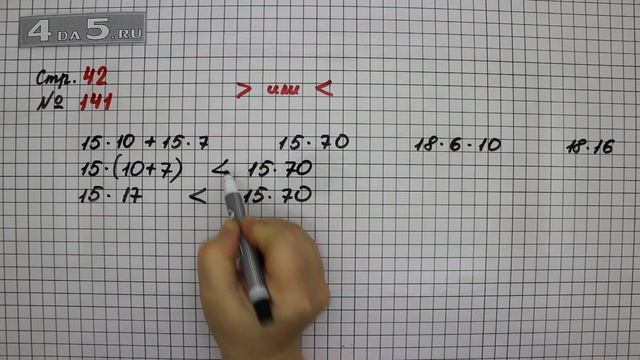 4 DA 5.RU
Стр. 42
№ 141
> или <
15·10 + 15·7   15·70   18·6·10   18·16
15·(10+7) < 15·70
15·17 < 15·70